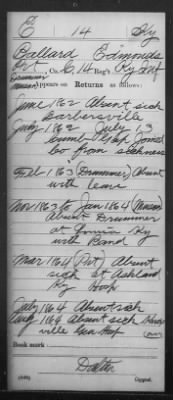 E 14 Ky
Ballard Edmonds
Pvt., Co. C, 14 Reg't Ky Inf
Drummer
Musician Appears on Returns as follows:
June 1862 Absent sick
Barbersville
July 1862 July 13
Cumb. Gap
from sickness
Feb 1863 (Drummer) Absent
with leave
Nov 1863 to Jan 1864 (Musician)
Absent Drummer
at Louisa Ky
with Band
Mar 1864 (Pvt) Absent
sick at Ashland
Ky Hosp
July 1864 Absent sick
Aug 1864 Absent sick
ville Hosp
(over)
Book mark:
Copyist.